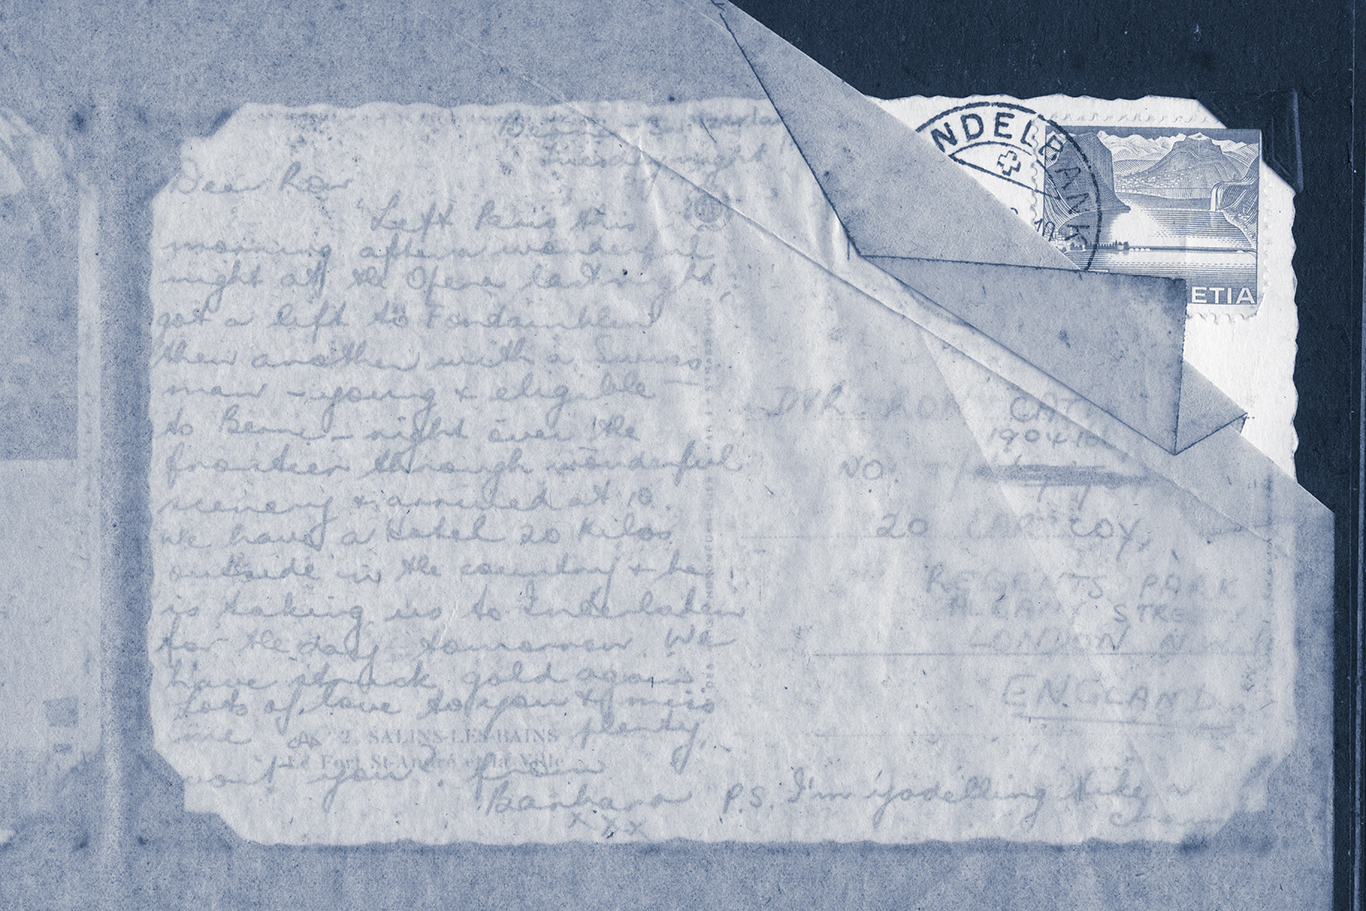 Tuesday night
Dear Ron
Left Paris this
morning after a wonderful
night at the Opera last night,
got a lift to
then another with a Swiss
man - young & eligible -
to Berne - right over the
frontier through wonderful
scenery & arrived at 10.
We have a hotel 20 kilos
outside in the country & he
is taking us to Interlaken
for the day tomorrow. We
have struck gold again.
Lots of love to you & miss
me plenty,
2. SALINS-LES-BAINS
Le Fort St-André et la Ville
wont you. from
Barbara
xxx
P.S. I'm yodelling like
NDELBANK
ETIA
DVR. RON
190410
NO.
20 COY,
REGENTS PARK
ALBANY STREET
LONDON N.W.1
ENGLAND.